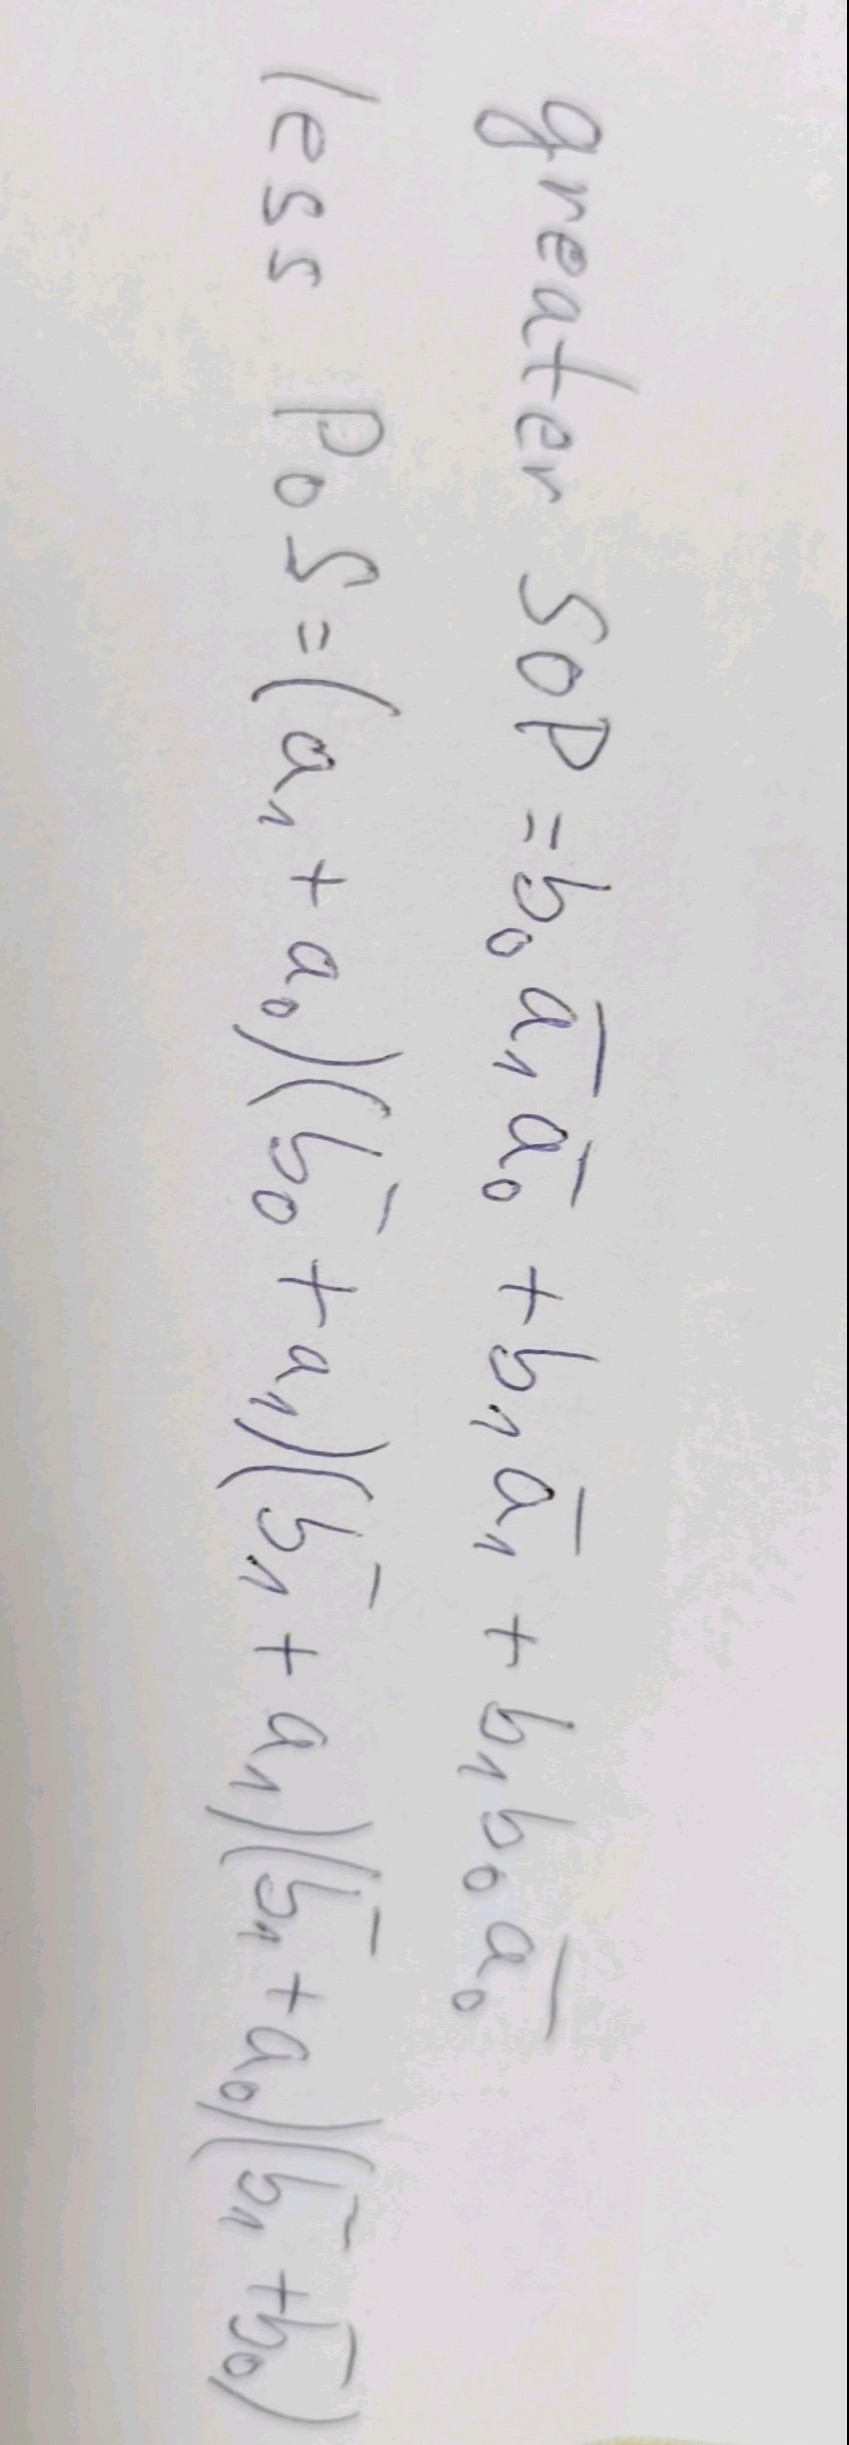 greater SOP = b₀ a̅₁ a̅₀ + b₁ a̅₁ + b₁ b₀ a̅₀
less PoS = (a₁ + a₀)(b̅₀ + a₁)(b̅₁ + a₁)(b̅₁ + a₀)(b̅₁ + b̅₀)